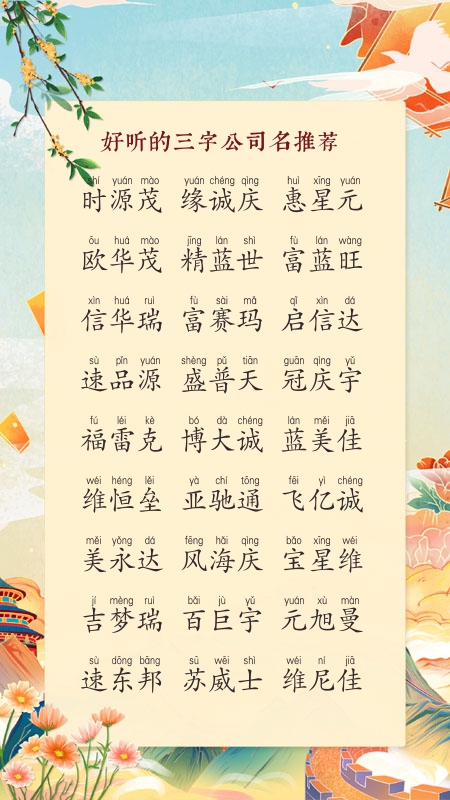 好听的三字公司名推荐
shí yuán mào yuán chéng qìng huì xīng yuán
时源茂 缘诚庆 惠星元
ōu huá mào jīng lán shì fù lán wàng
欧华茂 精蓝世 富蓝旺
xìn huá ruì fù sài mǎ qǐ xìn dá
信华瑞 富赛玛 启信达
sù pǐn yuán shèng pǔ tiān guān qìng yǔ
速品源 盛普天 冠庆宇
fú léi kè bó dà chéng lán měi jiā
福雷克 博大诚 蓝美佳
wéi héng lěi yà chí tōng fēi yì chéng
维恒垒 亚驰通 飞亿诚
měi yǒng dá fēng hǎi qìng bǎo xīng wéi
美永达 风海庆 宝星维
jí mèng ruì bǎi jù yǔ yuán xù màn
吉梦瑞 百巨宇 元旭曼
sù dōng bāng sū wēi shì wéi ní jiā
速东邦 苏威士 维尼佳